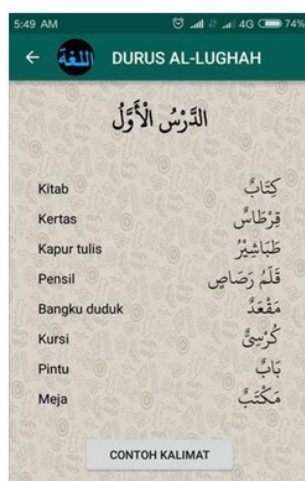 5:49 AM 4G 74%
اللغة DURUS AL-LUGHAH
الدَّرْسُ الْأَوَّلُ
Kitab كِتَابٌ
Kertas قِرْطَاسٌ
Kapur tulis طَبَاشِيْرُ
Pensil قَلَمُ رَصَاصٍ
Bangku duduk مَقْعَدٌ
Kursi كُرْسِيٌّ
Pintu بَابٌ
Meja مَكْتَبٌ
CONTOH KALIMAT